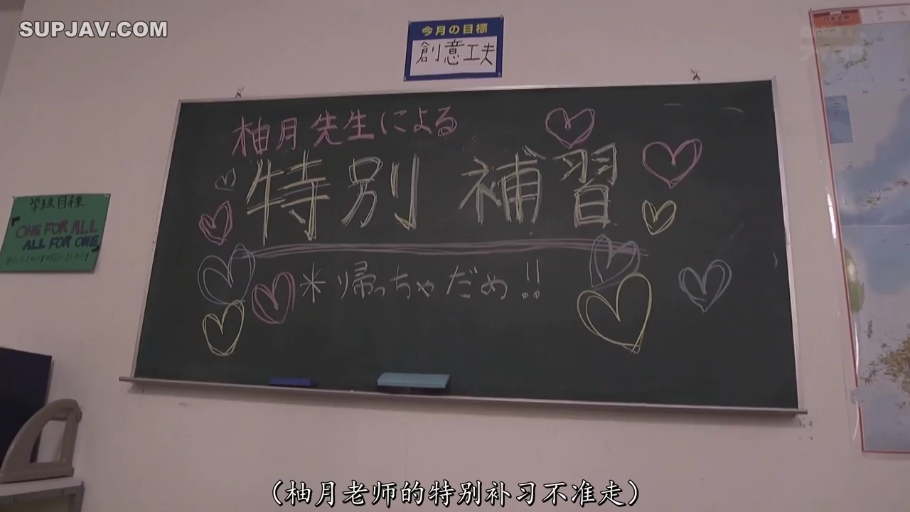 SUPJAV.COM
今月の目標
創意工夫
柚月先生による
特別補習
＊帰っちゃだめ!!
学級目標
「ONE FOR ALL
ALL FOR ONE」
（柚月老师的特别补习不准走）